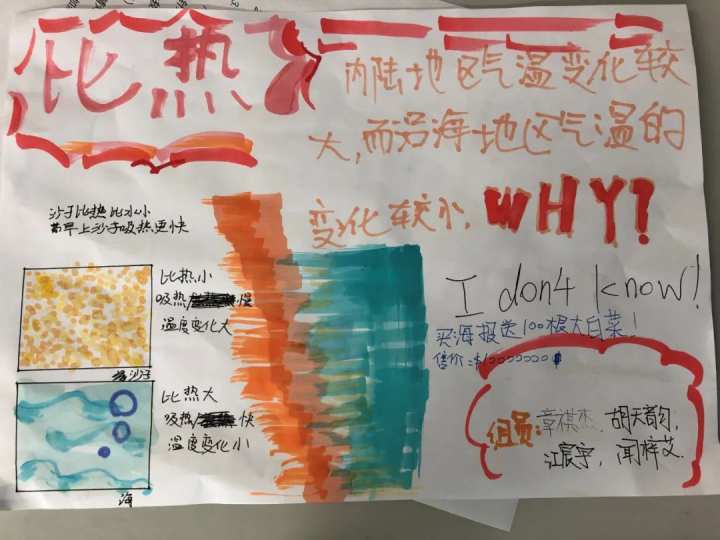 比热
内陆地区气温变化较
大,而沿海地区气温的
变化较小, WHY?
沙子比热比水小
而早上沙子吸热更快
比热小
吸热 慢
温度变化大
沙子
比热大
吸热 快
温度变化小
海
I don4 know!
买海报送100根大白菜!
售价:
组员:章祺杰、胡天韵,
江宸宇,闻梓艾